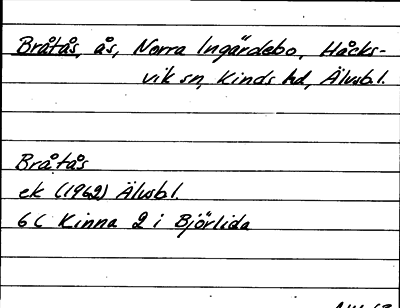 Bråtås, ås, Norra Ingärdebo, Håcks-
vik sn, Kinds hd, Älvsb.l.
Bråtås
ek (1962) Älvsb.l.
6C Kinna 2 i Björlida